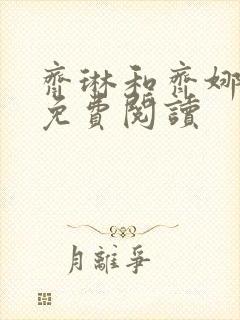 齊琳和齊娜
免費閱讀
月離爭